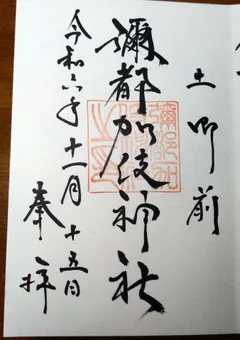 土御前
彌都加伎神社
令和六年十一月十五日
奉拝